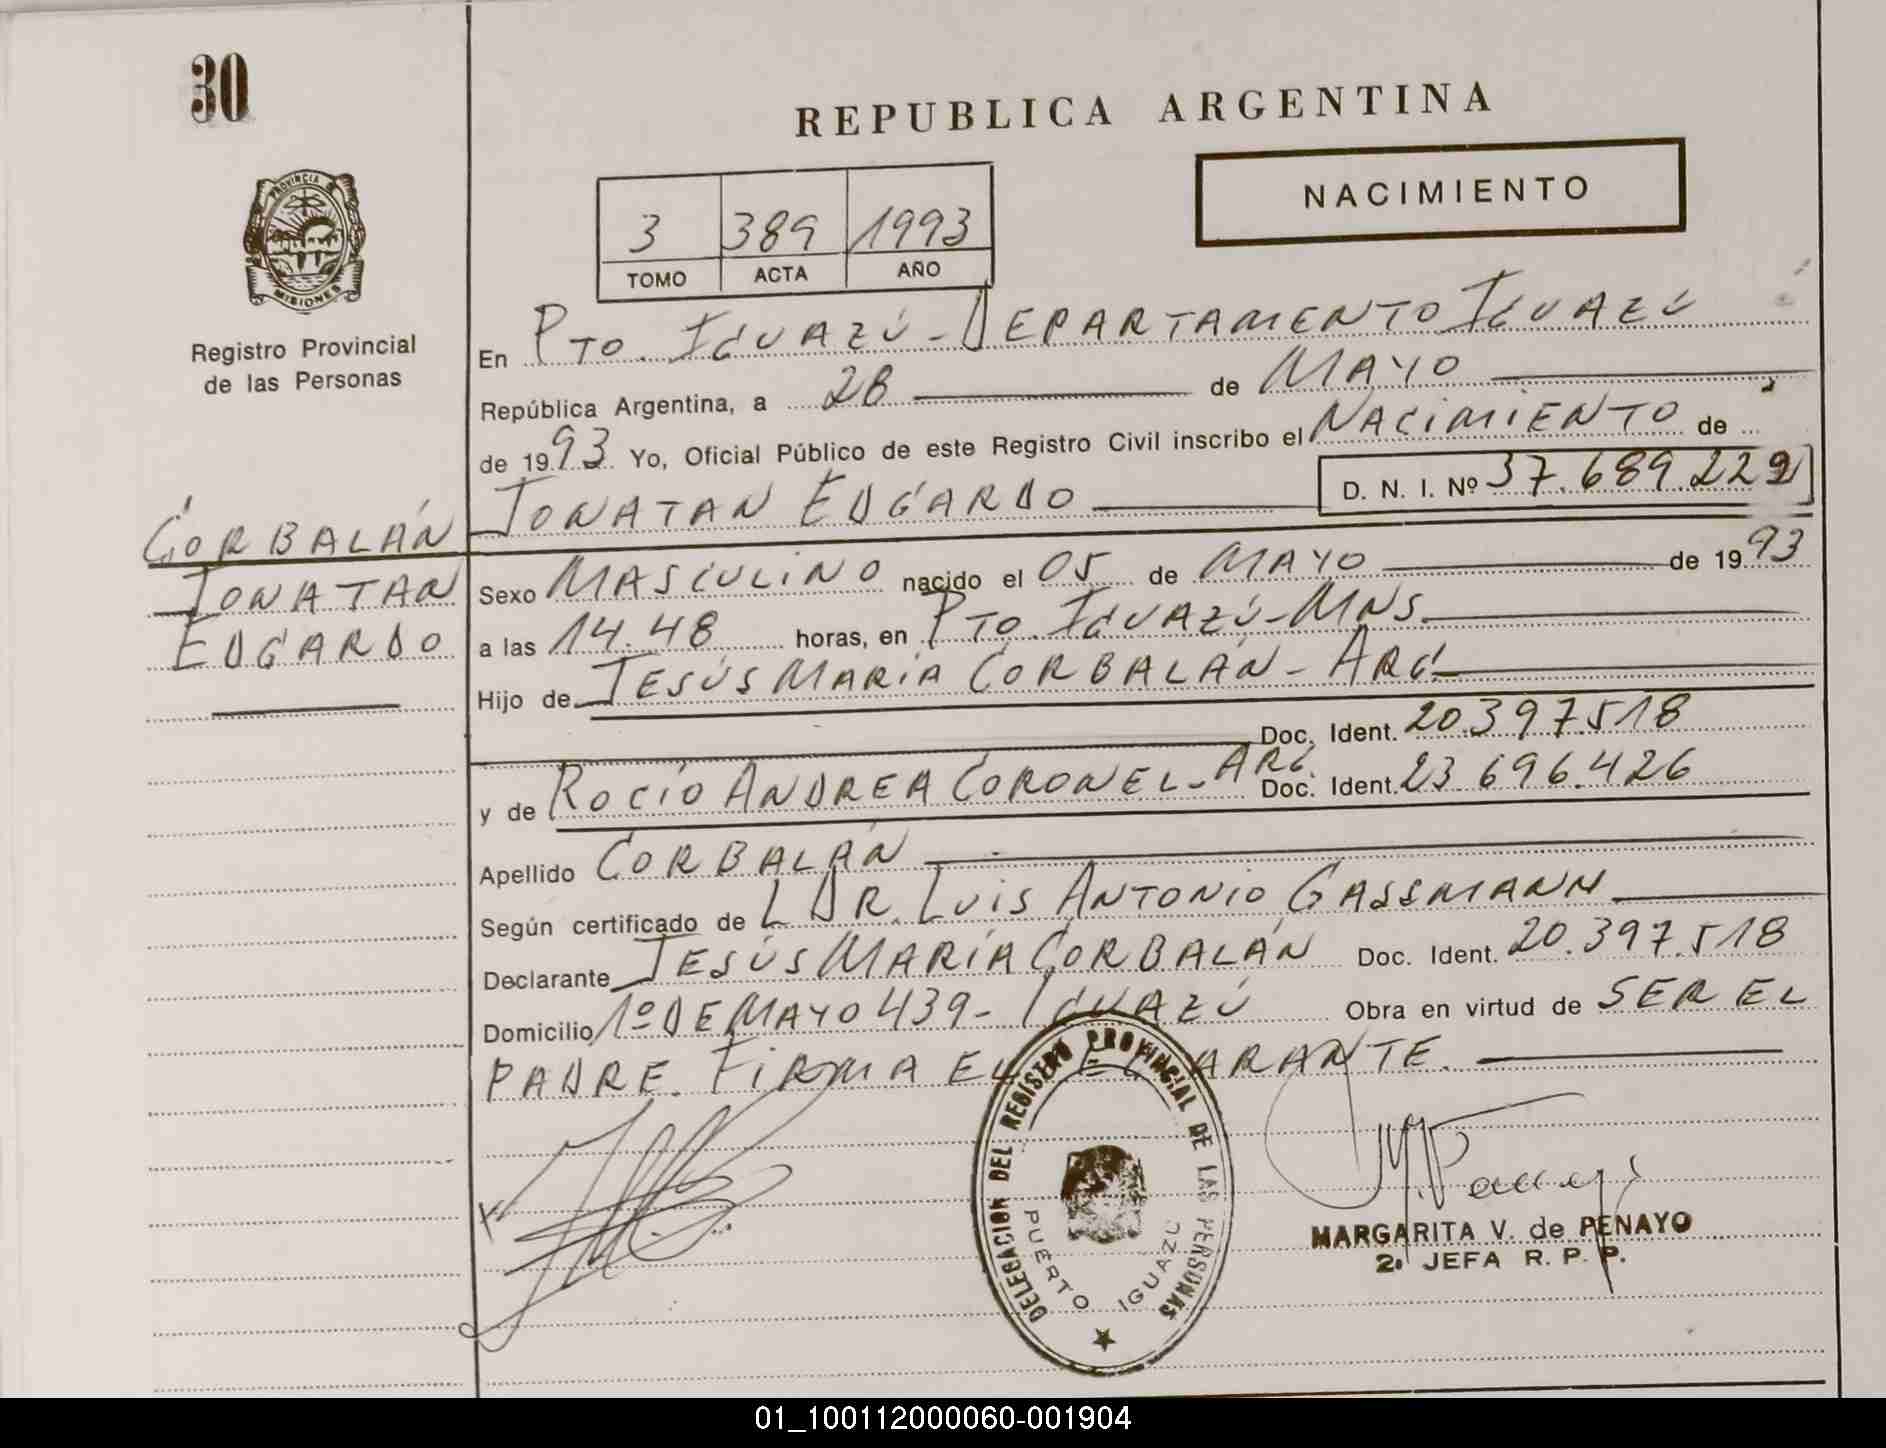 30
REPUBLICA ARGENTINA
NACIMIENTO
3 389 1993
TOMO ACTA AÑO
PROVINCIA DE
MISIONES
Registro Provincial
de las Personas
En PTO. IGUAZÚ - DEPARTAMENTO IGUAZÚ
República Argentina, a 28 de MAYO
de 1993 Yo, Oficial Público de este Registro Civil inscribo el NACIMIENTO de
JONATAN EDGARDO D. N. I. Nº 37.689.229
CORBALÁN
JONATAN
EDGARDO
Sexo MASCULINO nacido el 05 de MAYO de 1993
a las 14.48 horas, en PTO. IGUAZÚ - MNS.
Hijo de JESÚS MARÍA CORBALÁN - ARG.
Doc. Ident. 20.397.518
y de ROCÍO ANDREA CORONEL - ARG. Doc. Ident. 23.696.426
Apellido CORBALÁN
Según certificado de L DR. LUIS ANTONIO GASSMANN
Declarante JESÚS MARÍA CORBALÁN Doc. Ident. 20.397.518
Domicilio 1º DE MAYO 439 - IGUAZÚ Obra en virtud de SER EL
PADRE. FIRMA EL DECLARANTE.
DELEGACION DEL REGISTRO PROVINCIAL DE LAS PERSONAS
PUERTO IGUAZU
MARGARITA V. de PENAYO
2ª JEFA R. P. P.
01_100112000060-001904